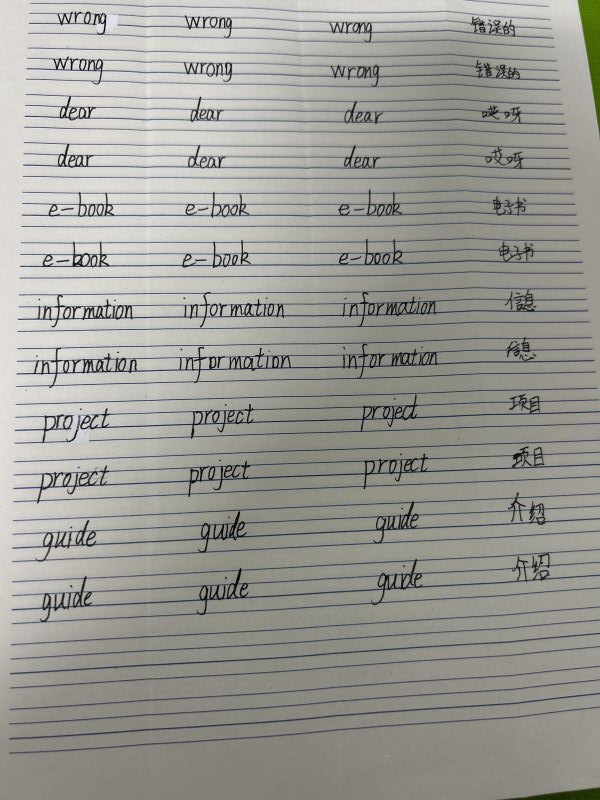 wrong wrong wrong 错误的
wrong wrong wrong 错误的
dear dear dear 哎呀
dear dear dear 哎呀
e-book e-book e-book 电子书
e-book e-book e-book 电子书
information information information 信息
information information information 信息
project project project 项目
project project project 项目
guide guide guide 介绍
guide guide guide 介绍